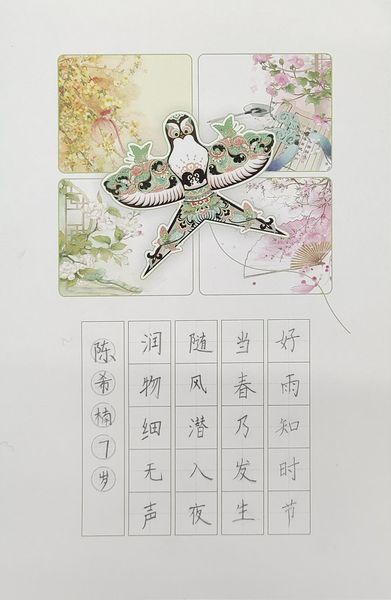 好雨知时节
当春乃发生
随风潜入夜
润物细无声
陈希楠7岁